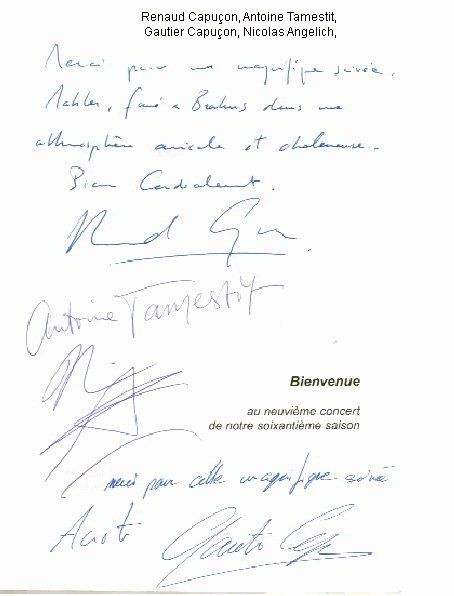 Renaud Capuçon, Antoine Tamestit,
Gautier Capuçon, Nicolas Angelich,
Merci pour une magnifique soirée.
Mahler, Fauré & Brahms dans une
athmosphère amicale et chaleureuse.
Bien Cordialement.
Antoine Tamestit
Bienvenue
au neuvième concert
de notre soixantième saison
merci pour cette magnifique soirée